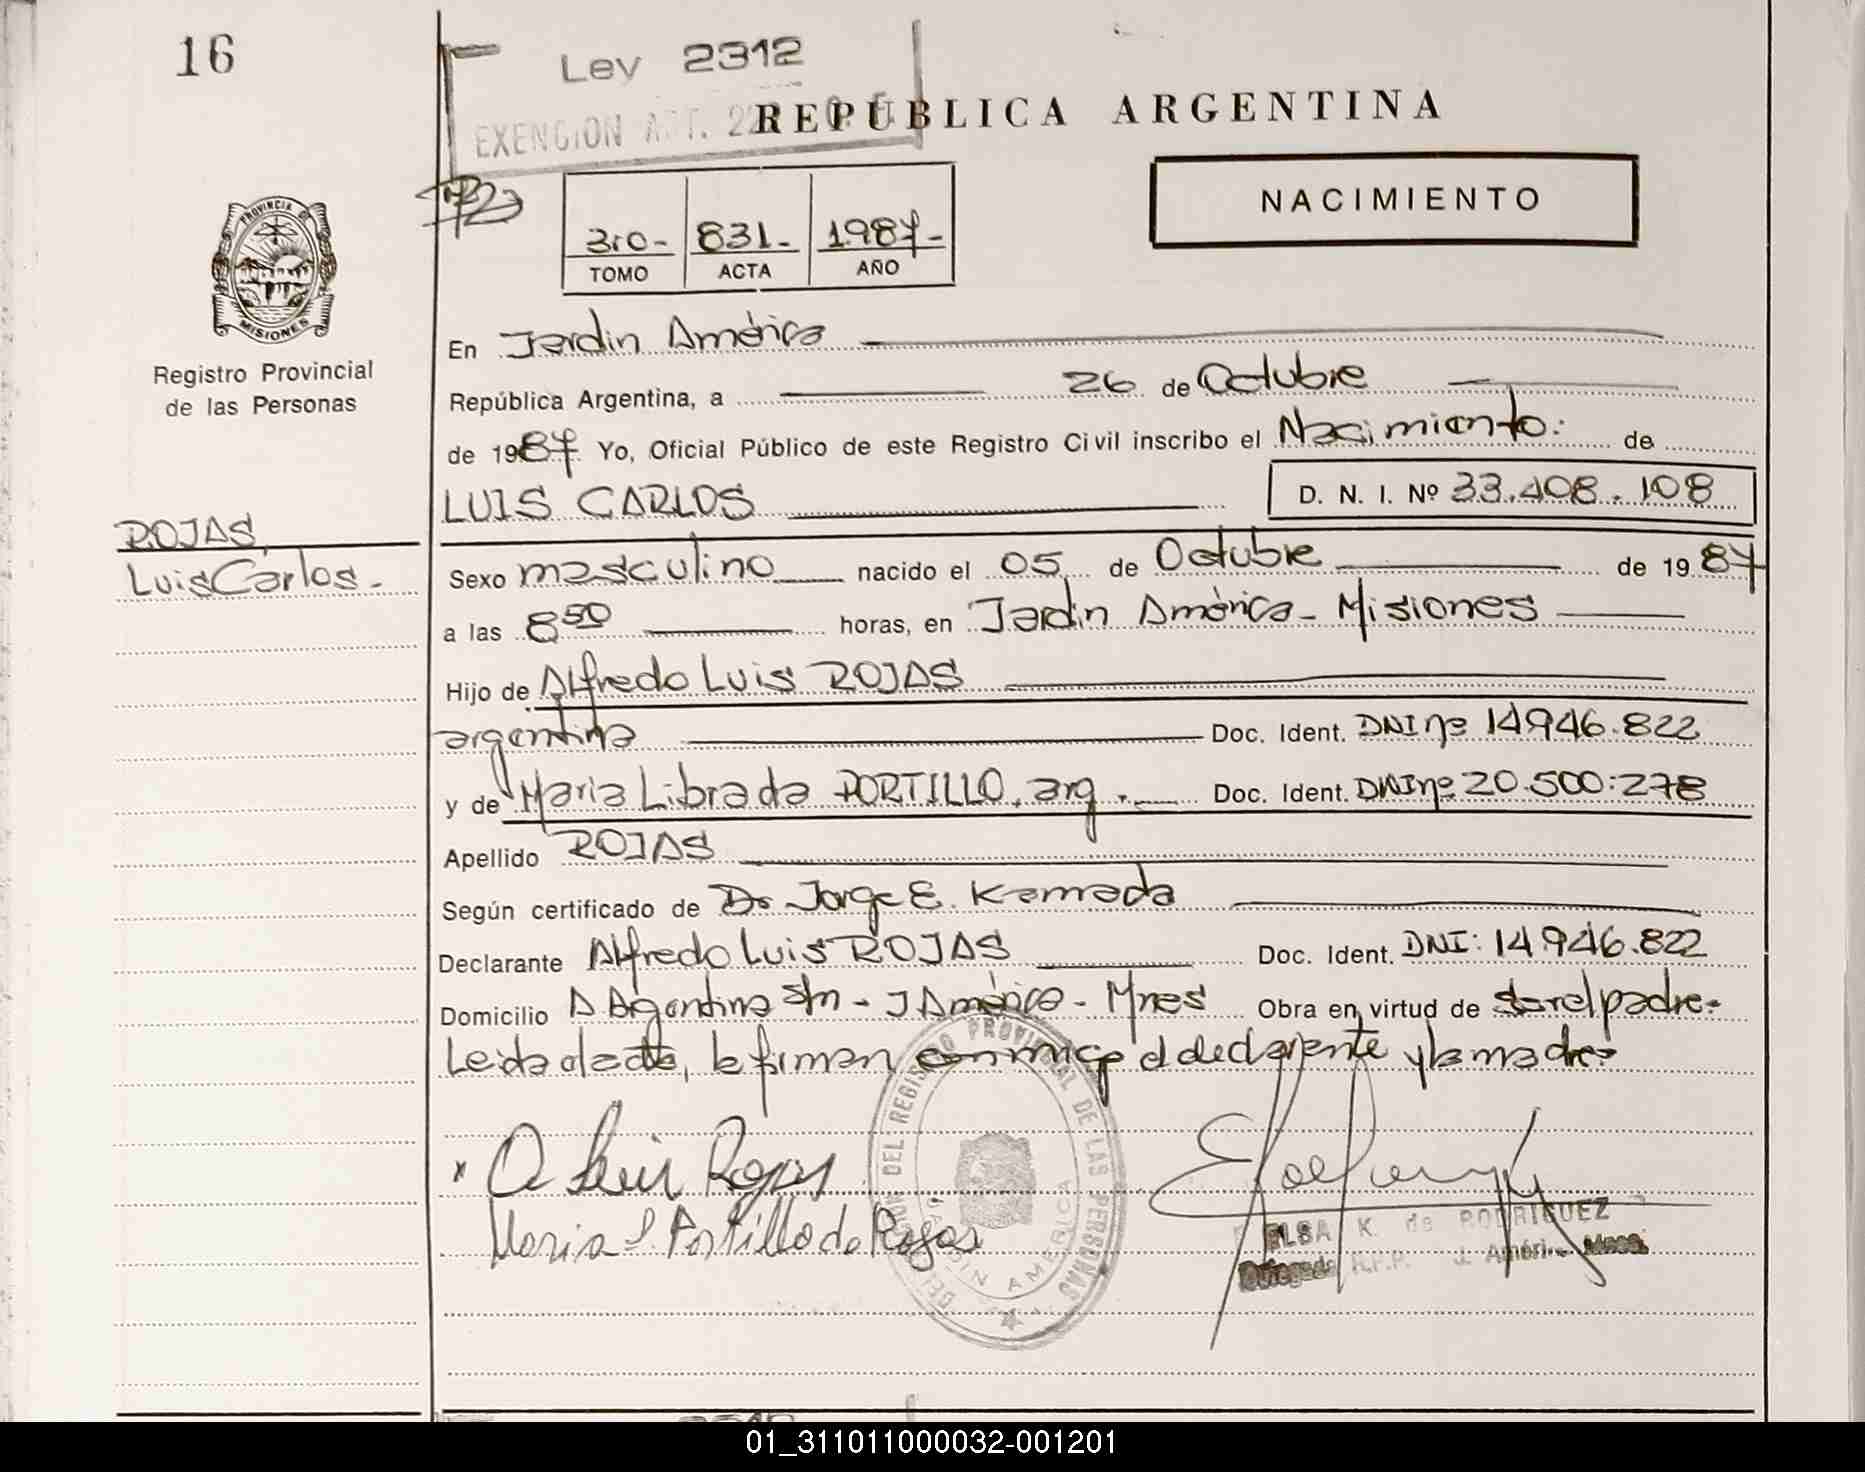 16
Ley 2312
EXENCION ART. 2
REPÚBLICA ARGENTINA
NACIMIENTO
3ro- 831- 1.987-
TOMO ACTA AÑO
PROVINCIA DE MISIONES
Registro Provincial
de las Personas
En Jardin América
República Argentina, a 26 de Octubre
de 1987 Yo, Oficial Público de este Registro Civil inscribo el Nacimiento. de
LUIS CARLOS D. N. I. Nº 33.408.108
ROJAS,
Luis Carlos-
Sexo masculino nacido el 05 de Octubre de 1987
a las 8 50 horas, en Jardin América- Misiones
Hijo de Alfredo Luis ROJAS
argentina Doc. Ident. DNI nº 14.946.822
y de Maria Librada PORTILLO, arg. Doc. Ident. DNI nº 20.500.278
Apellido ROJAS
Según certificado de Dr. Jorge E. Kamada
Declarante Alfredo Luis ROJAS Doc. Ident. DNI: 14.946.822
Domicilio A Argentina s/n - J América - Mnes Obra en virtud de ser el padre-
Leida el acta, la firman conmigo el declarante y la madre-
x A Luis Rojas
Maria L. Portillo de Rojas
DEL REGISTRO PROVINCIAL DE LAS PERSONAS
JARDIN AMERICA
ELSA K. de RODRIGUEZ
Delegada R.P.P. J. Améri Mnes.
01_311011000032-001201